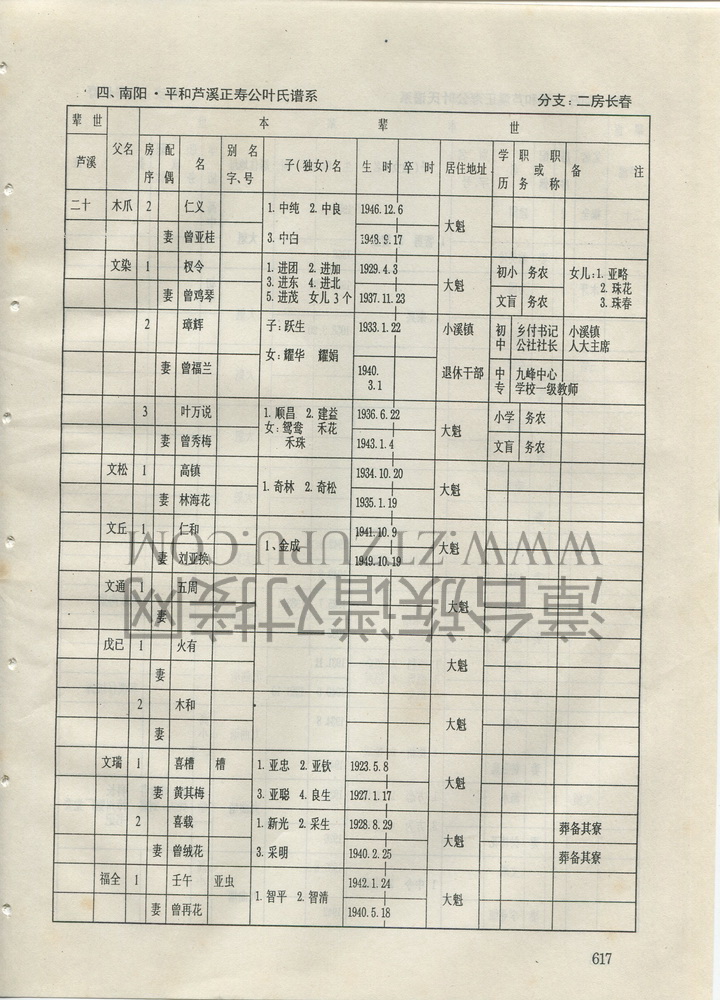 四、南阳·平和芦溪正寿公叶氏谱系 分支：二房长春
辈世 本辈世
芦溪 父名 房序 配偶 名 别名字、号 子(独女)名 生时 卒时 居住地址 学历 职或职务称 备注
二十 木爪 2 仁义 1.中纯 2.中良 1946.12.6 大魁
妻 曾亚桂 3.中白 1948.9.17
文染 1 权令 1.进团 2.进加 1929.4.3 大魁 初小 务农 女儿:1.亚略
3.进东 4.进北 2.珠花
妻 曾鸡琴 5.进茂 女儿3个 1937.11.23 文盲 务农 3.珠春
2 璋辉 子:跃生 1933.1.22 小溪镇 初中 乡付书记 小溪镇
公社社长 人大主席
女:耀华 耀娟
妻 曾福兰 1940. 退休干部 中专 九峰中心
3.1 学校一级教师
3 叶万说 1.顺昌 2.建益 1936.6.22 大魁 小学 务农
女:鸳鸯 禾花
妻 曾秀梅 禾珠 1943.1.4 文盲 务农
文松 1 高镇 1.奇林 2.奇松 1934.10.20 大魁
妻 林海花 1935.1.19
文丘 1 仁和 1、金成 1941.10.9 大魁
妻 刘亚换 1949.10.19
文通 1 五周 大魁
妻
戊已 1 火有 大魁
妻
2 木和 大魁
妻
文瑞 1 喜槽 槽 1.亚忠 2.亚钦 1923.5.8 大魁
妻 黄其梅 3.亚聪 4.良生 1927.1.17
2 喜载 1.新光 2.采生 1928.8.29 大魁 葬备其寮
妻 曾绒花 3.采明 1940.2.25 葬备其寮
福全 1 壬午 亚虫 1.智平 2.智清 1942.1.24 大魁
妻 曾再花 1940.5.18
617
WWW.ZTZUPU.COM
漳台族谱对接网